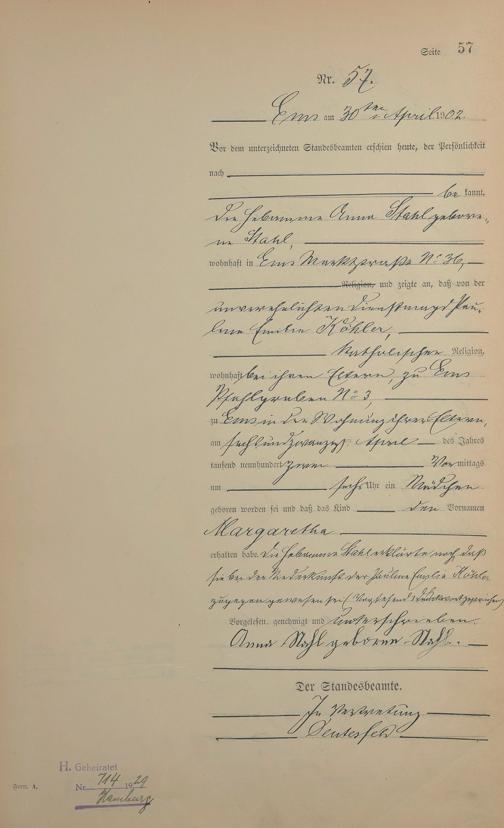 Seite 57
Nr. 57.
Ems am 30ten April 1902
Vor dem unterzeichneten Standesbeamten erschien heute, der Persönlichkeit
nach
bekannt,
die Hebamme Anna Stahl gebore-
ne Stahl,
wohnhaft in Ems Marktstraße No 36,
Religion, und zeigte an, daß von der
unverehelichten Dienstmagd Pau-
line Emilie Köhler,
katholischer Religion,
wohnhaft bei ihren Eltern, zu Ems
Pfahlgraben No 3,
zu Ems in der Wohnung ihrer Eltern,
am sechsundzwanzigsten April des Jahres
tausend neunhundert zwei Vormittags
um sechs Uhr ein Mädchen
geboren worden sei und daß das Kind den Vornamen
Margaretha
erhalten habe. Die Hebamme Stahl erklärte noch daß
sie bei der Niederkunft der Pauline Emilie Köhler
zugegen gewesen sei. (Vorstehend 1 Druckwort gestrichen)
Vorgelesen, genehmigt und unterschrieben.
Anna Stahl geborene Stahl.
Der Standesbeamte.
In Vertretung
H. Geheiratet
Nr. 714 1929
Hamburg
Form. A.